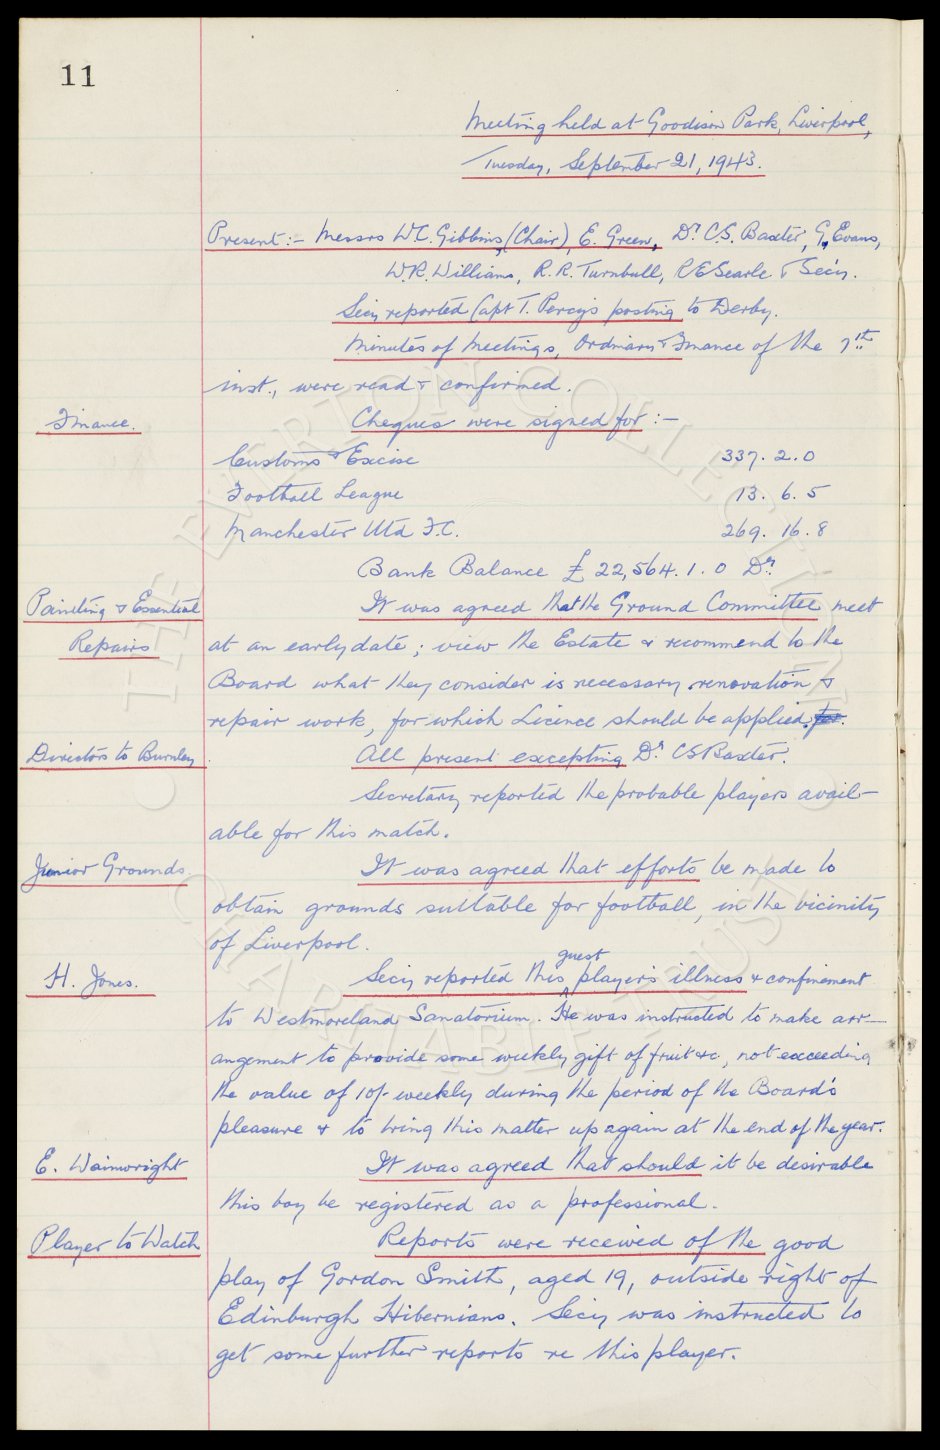 11
Meeting held at Goodison Park, Liverpool,
Tuesday, September 21, 1943.
Present:- Messrs W.C. Gibbins, (Chair), E. Green, Dr. C.S. Baxter, G. Evans,
W.R. Williams, R.R. Turnbull, R E Searle & Secy.
Secy reported Capt T. Percy's posting to Derby.
Minutes of Meetings, Ordinary & Finance of the 7th
inst., were read & confirmed.
Finance. Cheques were signed for :-
Customs & Excise 337. 2. 0
Football League 13. 6. 5
Manchester Utd F.C. 269. 16. 8
Bank Balance £ 22,564. 1. 0 Dr.
Painting & Essential It was agreed that the Ground Committee meet
Repairs at an early date; view the Estate & recommend to the
Board what they consider is necessary renovation &
repair work, for which Licence should be applied. for.
Directors to Burnley All present excepting Dr. CS Baxter.
Secretary reported the probable players avail-
able for this match.
Junior Grounds. It was agreed that efforts be made to
obtain grounds suitable for football, in the vicinity
of Liverpool.
guest
H. Jones. Secy reported this player's illness & confinement
to Westmoreland Sanatorium. He was instructed to make arr-
angement to provide some weekly gift of fruit &c, not exceeding
the value of 10/- weekly during the period of the Board's
pleasure & to bring this matter up again at the end of the year.
E. Wainwright It was agreed that should it be desirable
this boy be registered as a professional.
Player to Watch Reports were received of the good
play of Gordon Smith, aged 19, outside right of
Edinburgh Hibernians. Secy was instructed to
get some further reports re this player.
© THE EVERTON COLLECTION
CHARITABLE TRUST